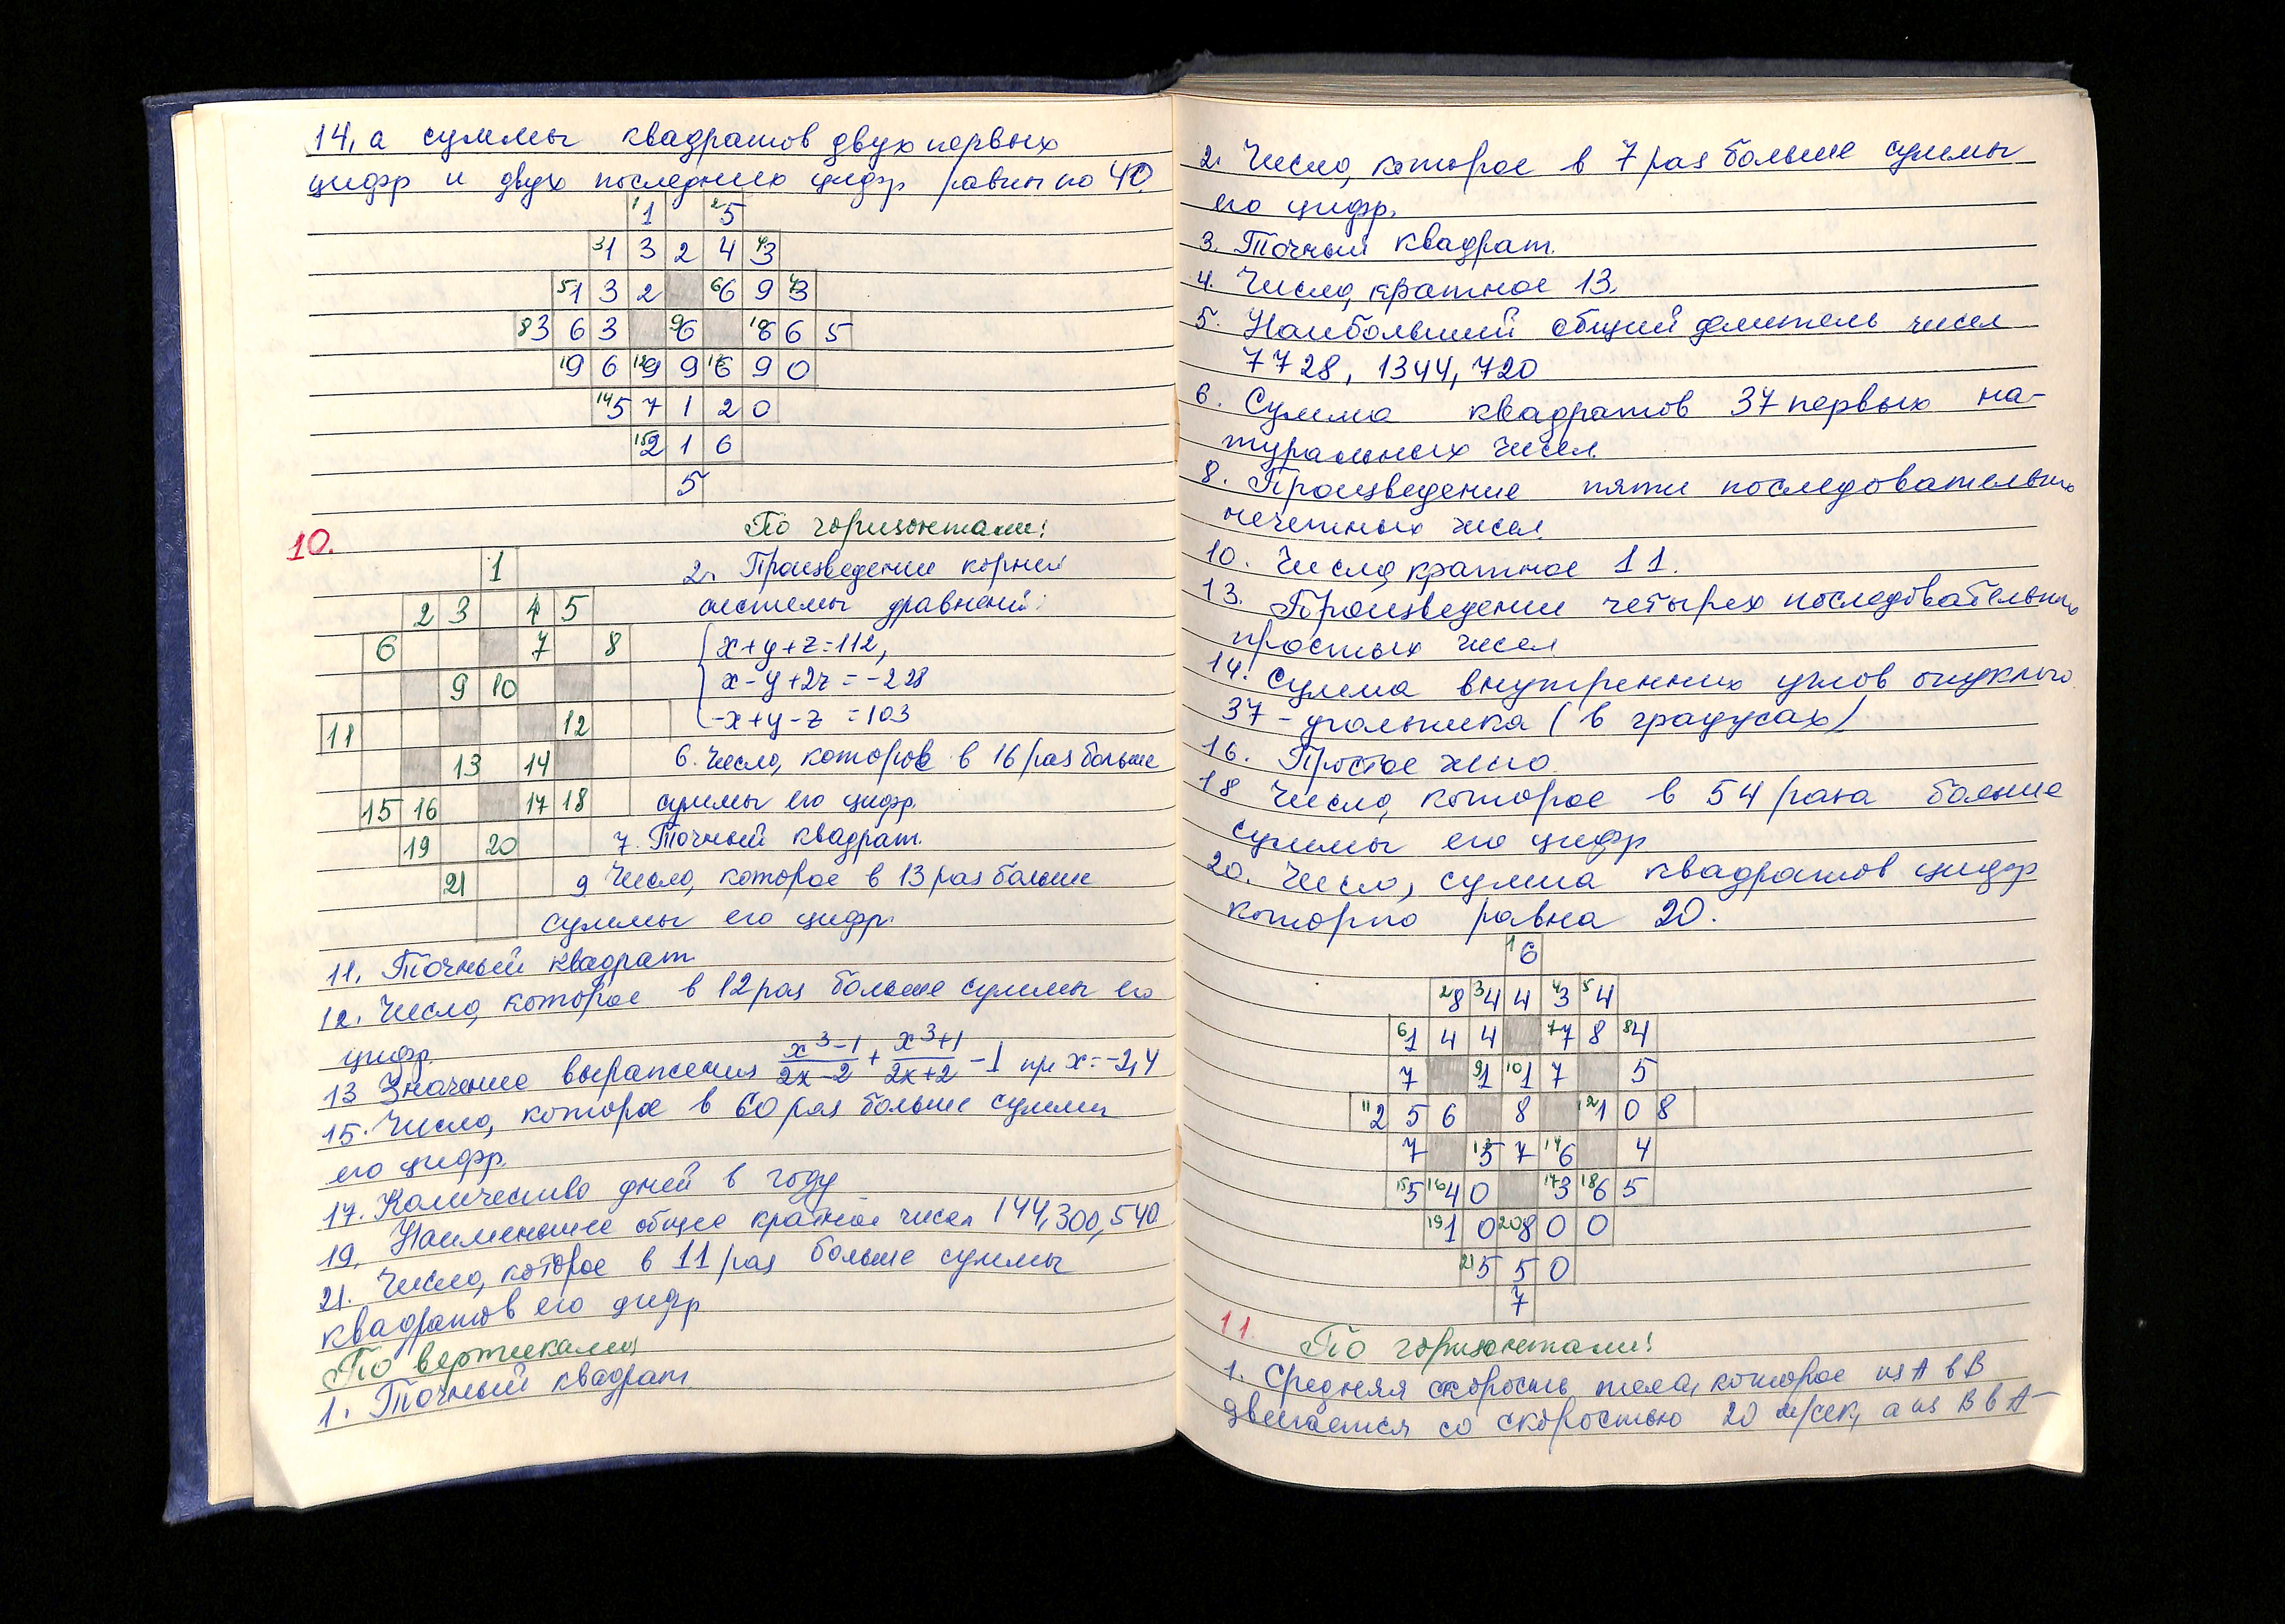 14, а суммы квадратов двух первых
цифр и двух последних цифр равны по 40.
1 1 2 5
3 1 3 2 4 4 3
5 1 3 2 6 6 9 7 3
8 3 6 3 9 6 10 8 6 5
11 9 6 12 9 9 13 6 9 0
14 5 7 1 2 0
15 2 1 6
5
10.
По горизонтали:
1
2 3 4 5
6 7 8
9 10
11 12
13 14
15 16 17 18
19 20
21
2. Произведение корней
системы уравнений:
x+y+z=112,
x-y+2z=-228
-x+y-z=103
6. Число, которое в 16 раз больше
суммы его цифр.
7. Точный квадрат.
9 Число, которое в 13 раз больше
суммы его цифр.
11. Точный квадрат
12. Число, которое в 12 раз больше суммы его
цифр.
13 Значение выражения x³-1/2x-2 + x³+1/2x+2 -1 при x=-2,4
15. Число, которое в 60 раз больше суммы
его цифр.
17. Количество дней в году
19. Наименьшее общее кратное чисел 144, 300, 540
21. Число, которое в 11 раз больше суммы
квадратов его цифр
По вертикали:
1. Точный квадрат
2. Число, которое в 7 раз больше суммы
его цифр.
3. Точный квадрат.
4. Число, кратное 13.
5. Наибольший общий делитель чисел
7728, 1344, 720
6. Сумма квадратов 37 первых на-
туральных чисел.
8. Произведение пяти последовательных
нечетных чисел.
10. Число, кратное 11.
13. Произведение четырех последовательных
простых чисел
14. Сумма внутренних углов выпуклого
37-угольника (в градусах)
16. Простое число.
18 Число, которое в 54 раза больше
суммы его цифр
20. Число, сумма квадратов цифр
которого равна 20.
1 6
2 8 3 4 4 4 3 5 4
6 1 4 4 7 7 8 8 4
7 9 1 10 1 7 5
11 2 5 6 8 12 1 0 8
7 13 5 7 14 6 4
15 5 16 4 0 17 3 18 6 5
19 1 0 20 8 0 0
21 5 5 0
7
11.
По горизонтали:
1. Средняя скорость тела, которое из А в В
двигается со скоростью 20 м/сек, а из В в А-